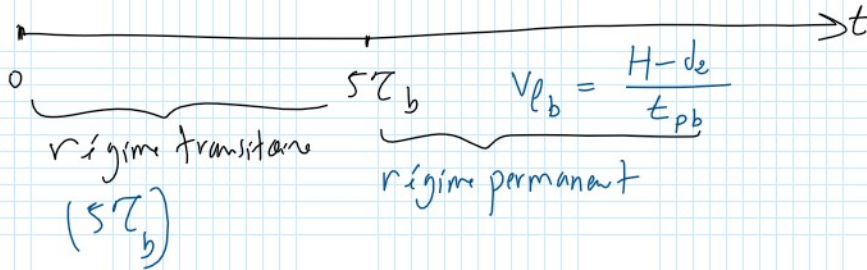 t
0
5τ_b
V_{ℓb} = (H-d_2)/t_{pb}
régime transitoire
régime permanent
(5τ_b)